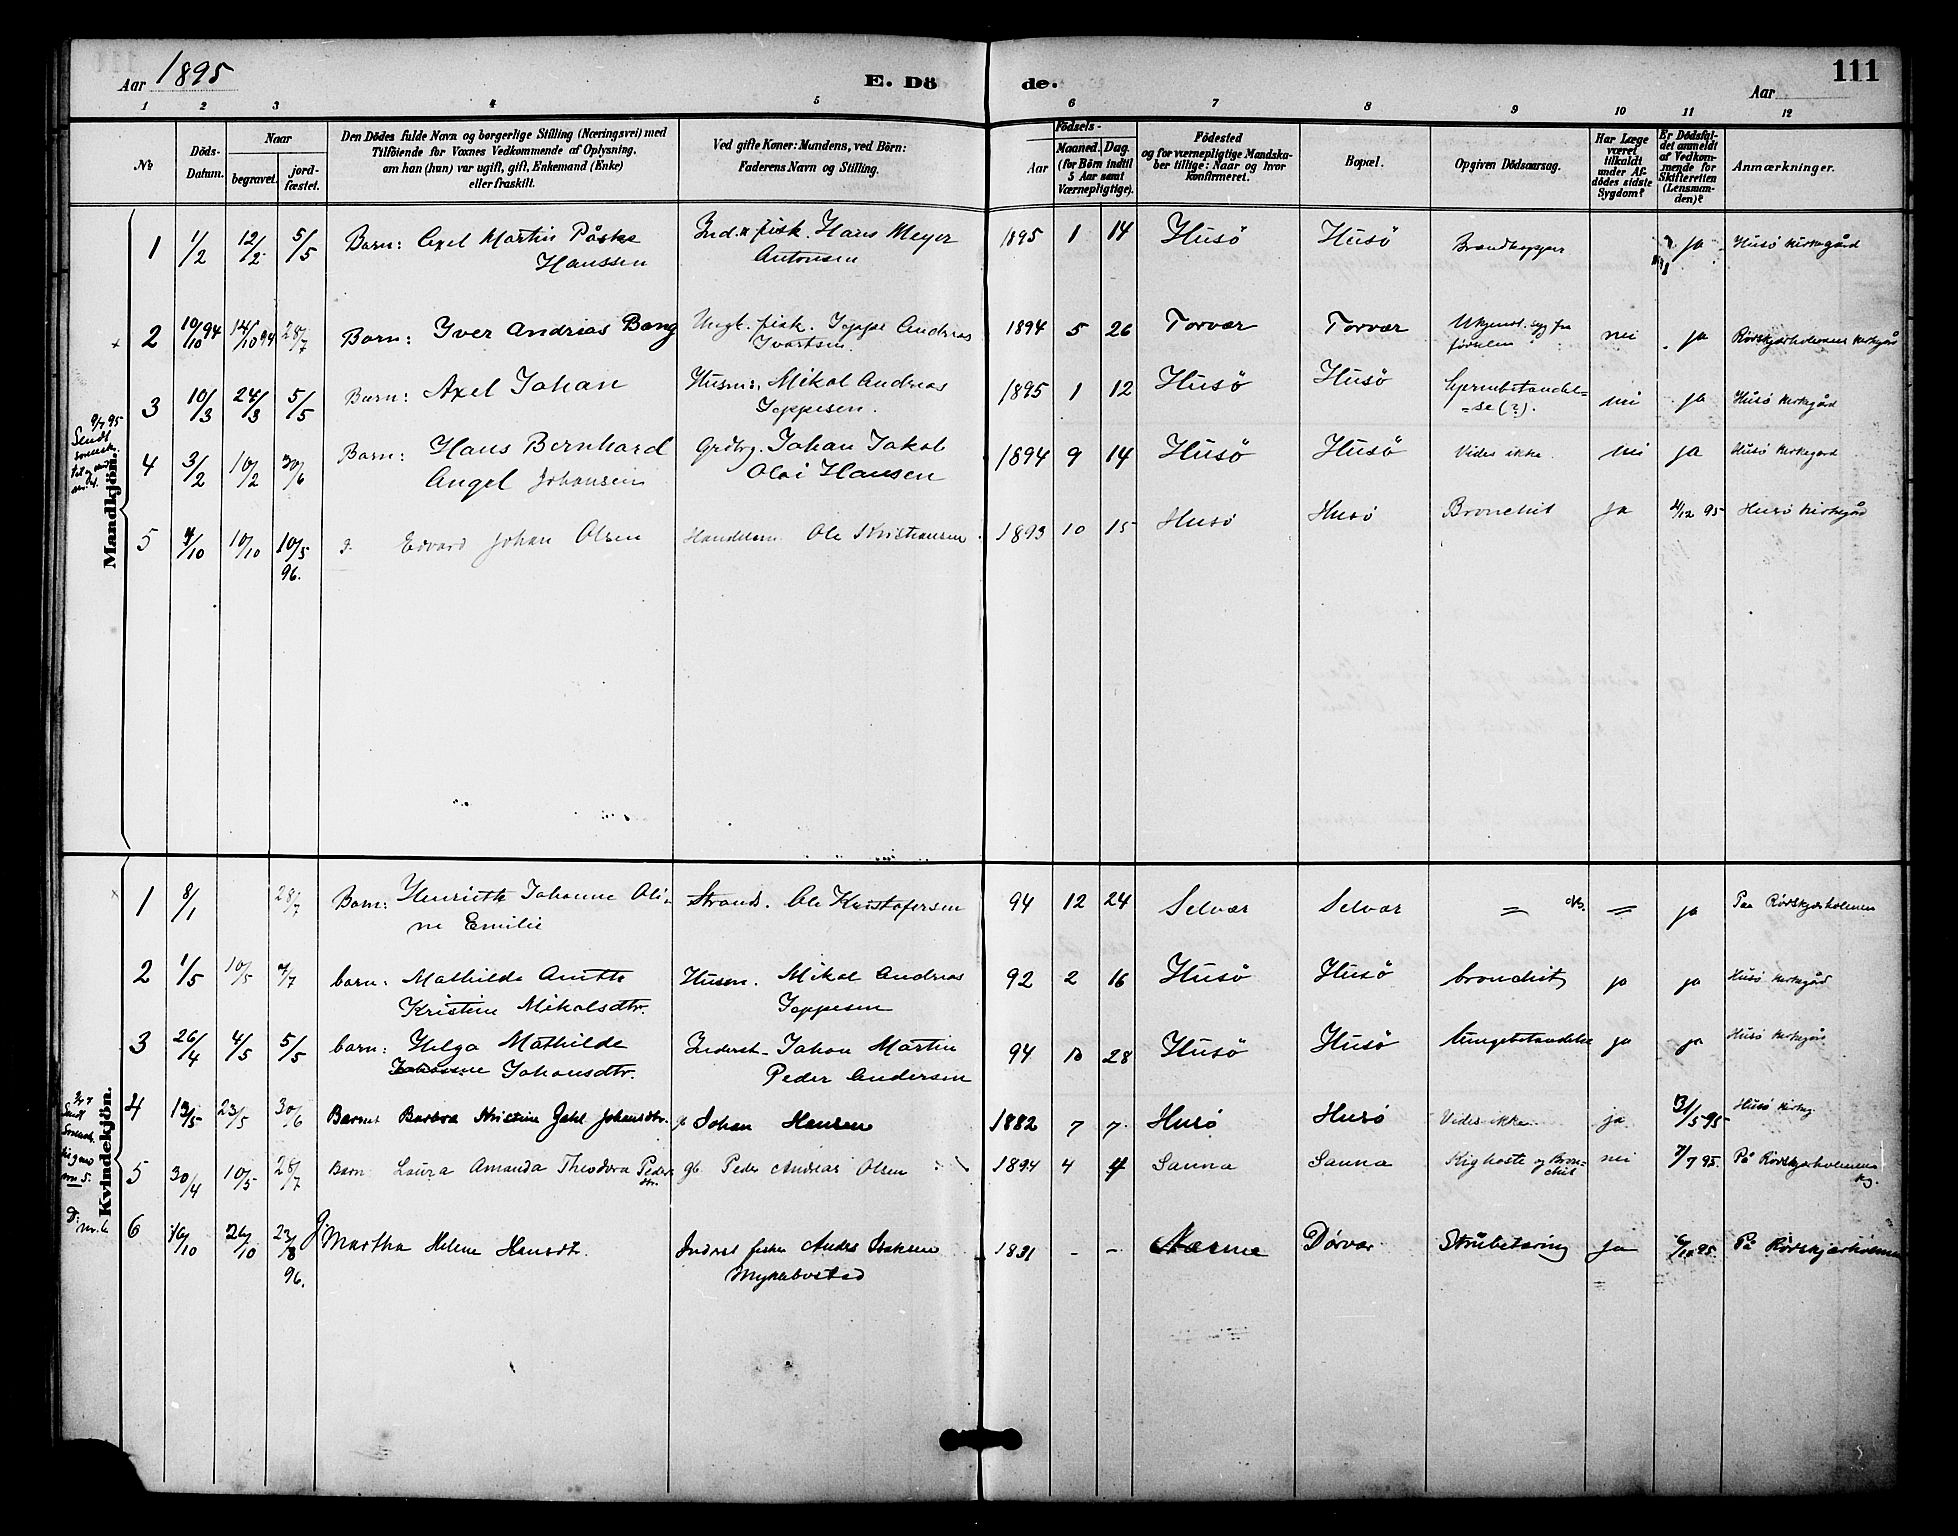 Aar 1895
E. Dö
de.
Aar
111
1 2 3 4 5 6 7 8 9 10 11 12
No
Döds-Datum.
Naar
begravet.
jord-fæstet.
Den Dödes fulde Navn og borgerlige Stilling (Næringsvei) med
Tilföiende for Voxnes Vedkommende af Oplysning,
om han (hun) var ugift, gift, Enkemand (Enke)
eller fraskilt.
Ved gifte Koner: Mandens, ved Börn:
Faderens Navn og Stilling.
Födsels-
Aar
Maaned. Dag.
(for Börn indtil
5 Aar samt
Værnepligtige).
Födested
og for værnepligtige Mandska-
ber tillige: Naar og hvor
konfirmeret.
Bopæl.
Opgiven Dödsaarsag.
Har Læge
været
tilkaldt
under Af-
dödes sidste
Sygdom?
Er Dödsfal-
det anmeldt
af Vedkom-
mende for
Skifteretten
(Lensman-
den)?
Anmærkninger.
Mandkjön.
1 1/2 12/2 5/5 Barn: Axel Martin Påske Ind. & fisk. Hans Meyer 1895 1 14 Husö Husö Brandkopper ja Husö kirkegård
Hanssen Antonsen
2 10/10 94 14/10 94 28/7 Barn: Yver Andrias Bang Ungk. fisk. Jeppe Andreas 1894 5 26 Torvær Torvær Ukjendt. syg fra nei ja Rövskjærholmens kirkegård
Ivartsen. födselen
3 10/3 24/3 5/5 Barn: Axel Johan Husm: Mikal Andreas 1895 1 12 Husö Husö hjernebetændel- nei ja Husö kirkegård
Jeppesen. =se (?).
4 3/2 10/2 30/6 Barn: Hans Bernhard Grdbrg. Johan Jakob 1894 9 14 Husö Husö Vides ikke. nei ja Husö kirkegard
Angel Johansen Olai Hansen
5 4/10 10/10 10/5 Edvard Johan Olsen Handelsm. Ole Kristiansen. 1893 10 15 Husö Husö Bronchit ja /12 95 Husö kirkegård
96.
Kvindekjön.
1 8/1 28/7 Barn: Henriette Johanne Oli- Strands. Ole Kristofersen 94 12 24 Selvær Selvær = = ja Paa Rövskjærholmen
ne Emilie
2 1/5 10/5 /7 barn: Mathilde Anette Husm. Mikal Andreas 92 2 16 Husö Husö bronchit ja ja Husö kirkegård
Kristine Mikalsdtr. Jeppesen
3 26/4 4/5 5/5 barn: Helga Mathilde Inderst. Johan Martin 94 10 28 Husö Husö lungebetændelse ja ja Husö kirkegård
Johansdtr. Peder Andersen
4 13/5 23/5 30/6 Barn: Barbra Kristine Johansdtr. Johan Hansen 1882 7 7 Husö Husö Vides ikke ja 31/5 95 Husö kirkeg
5 30/4 10/5 28/7 Barn Laura Amanda Theodora Peders dtr. gb. Peder Andreas Olsen 1894 4 4 Sanna Sanna Kighoste og Bron-chit nei /7 95. På Rövskjærholmens kg.
6 16/10 26/10 23/8 Martha Helene Hansdt. Inderst fisker Anders Isaksen 1831 - - Næsne Dörvær Strubetæring ja /12 95. På Rövskjærholmen
96. Myklebostad